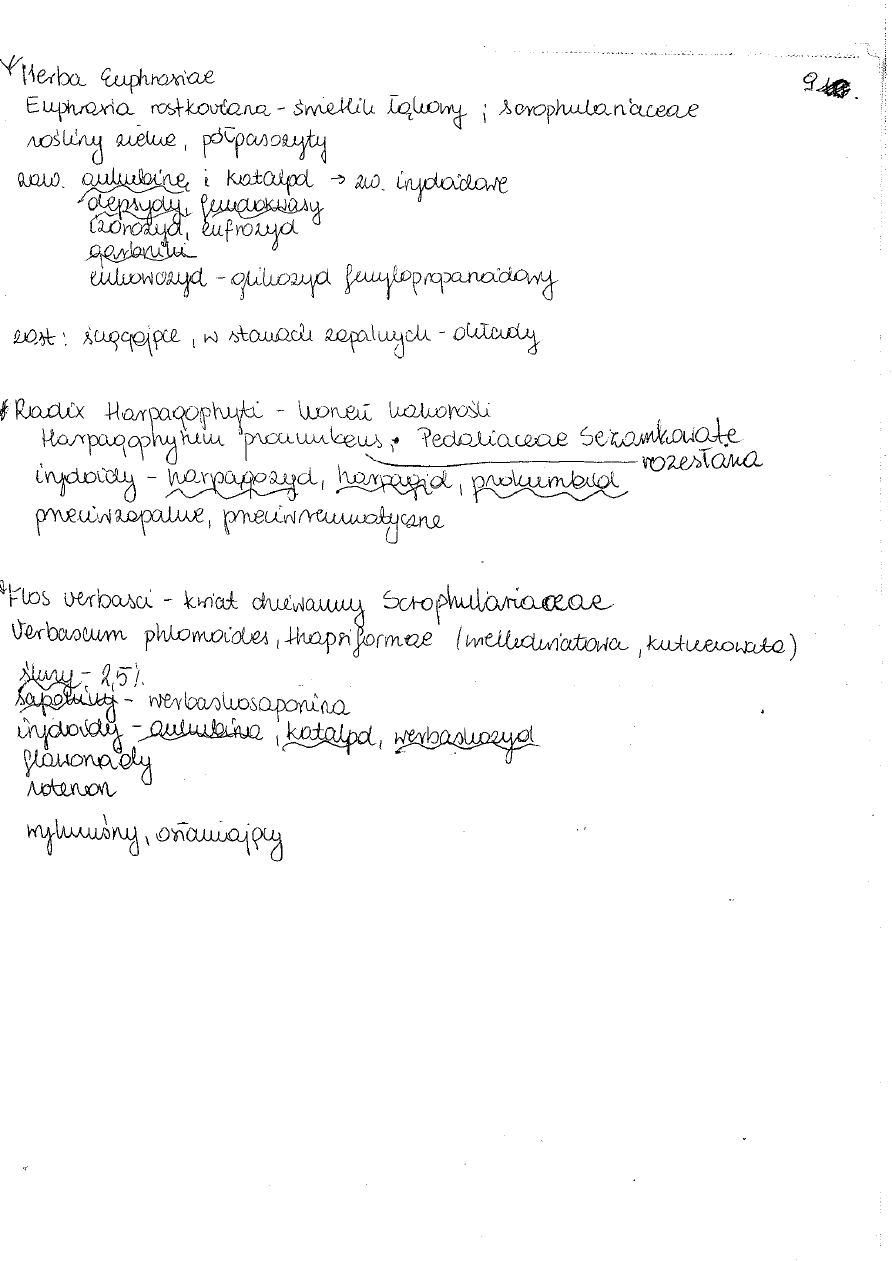 Herba Euphrasiae
9.
Euphrasia rostkoviana - świetlik łąkowy ; Scrophulariaceae
rośliny zielne, półpasożyty
zaw. aukubinę i katalpol → zw. irydoidowe
depsydy, fenolokwasy
izorozyd, eufrozyd
garbniki
eukowozyd - glikozyd fenylopropanoidowy
zast: ściągające, w stanach zapalnych - okłady
Radix Harpagophyti - korzeń hakorośli
Harpagophytum procumbens, Pedaliaceae Sezamkowate
rozesłana
irydoidy - harpagozyd, harpagid, prokumbid
przeciwzapalne, przeciwreumatyczne
Flos verbasci - kwiat dziewanny Scrophulariaceae
Verbascum phlomoides, thapsiformae (wielkokwiatowa, kutnerowata)
śluzy - 2,5%
saponiny - werbaskosaponina
irydoidy - aukubina, katalpol, werbaskozyd
flawonoidy
rotenon
wykrztuśny, osłaniający